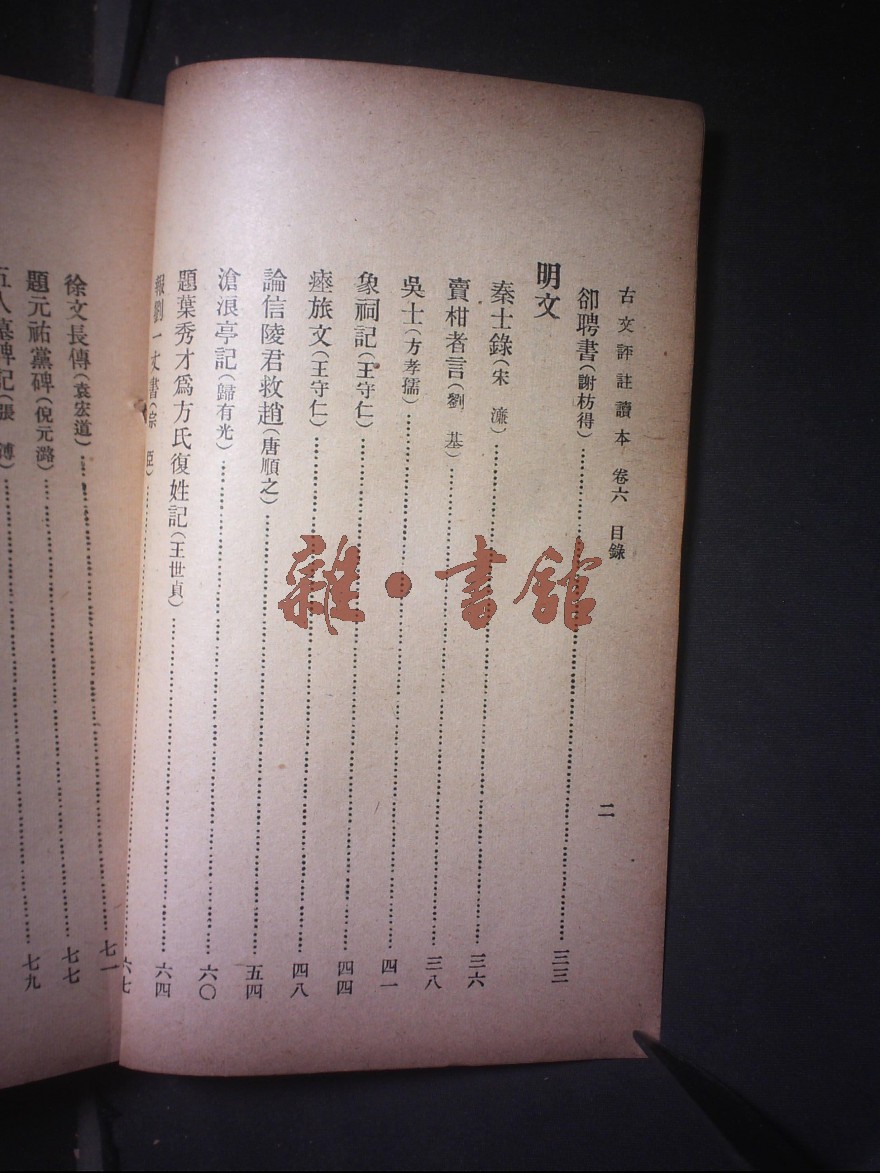 古文評註讀本 卷六 目錄 二
卻聘書(謝枋得)……三三
明文
秦士錄(宋 濂)……三六
賣柑者言(劉 基)……三八
吳士(方孝孺)……四一
象祠記(王守仁)……四四
瘞旅文(王守仁)……四八
論信陵君救趙(唐順之)……五四
滄浪亭記(歸有光)……六〇
題葉秀才爲方氏復姓記(王世貞)……六四
報劉一丈書(宗 臣)……六七
徐文長傳(袁宏道)……七一
題元祐黨碑(倪元潞)……七七
五人墓碑記(張 溥)……七九
雜·書館